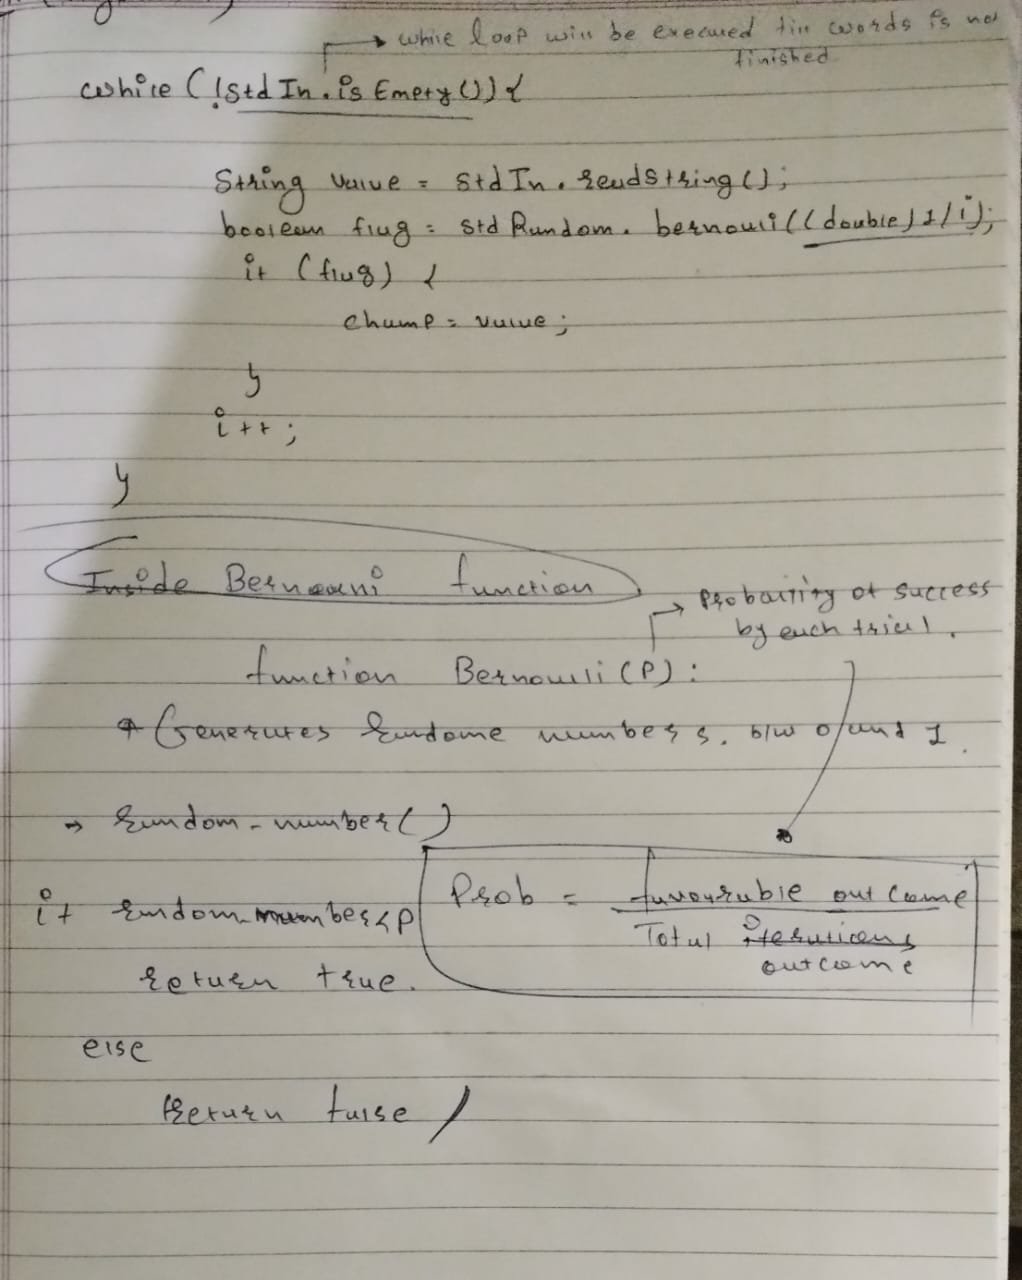 → while loop will be execured till words is not
finished
while (!StdIn.isEmpty()){
String value = StdIn.readString();
boolean flag = StdRandom.bernouli((double)1/i);
if (flag) {
champ = value;
}
i++;
}
Inside Bernouni function
→ Probability of success
by each trial.
function Bernoulli(P):
* Generates Random numbers. b/w 0 and 1.
→ Random-number()
if random-number<P
return true.
Prob = favourable outcome
Total iterations
outcome
else
Return false